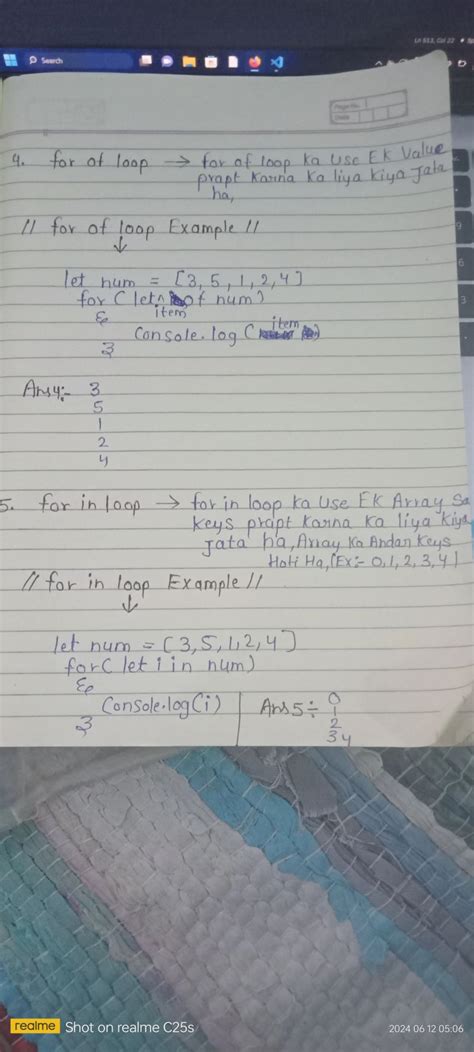 Ln 553, Col 22
Search
Page No.
Date
4. for of loop → for of loop ka Use Ek Value
prapt karna ka liya kiya Jata
ha,
// for of loop Example //
↓
let num = [3, 5, 1, 2, 4]
for ( let item of num)
{
Console.log ( item )
}
Ans4:- 3
5
1
2
4
5. for in loop → for in loop ka Use Ek Array Sa
keys prapt karna ka liya kiya
Jata ha, Array Ka Andar Keys
Hoti Ha, [Ex:- 0, 1, 2, 3, 4]
// for in loop Example //
↓
let num = [3, 5, 1, 2, 4]
for( let i in num)
{
Console.log(i)
}
Ans5÷ 0
1
2
3 4
9
6
3
realme Shot on realme C25s
2024 06 12 05:06